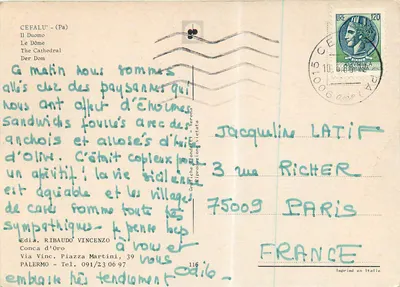 CEFALU' - (Pa)
Il Duomo
Le Dôme
The Cathedral
Der Dom
Ce matin nous sommes
allés chez des paysannes qui
nous ont offert d'énormes
sandwichs fourrés avec des
anchois et arrosés d'huile
d'Olive. C'était copieux pour
un apéritif! la vie sicilienne
est agréable et les villages
de cans somme toute très
sympathiques. Je pense bcp
à vous et vous
embrasse très tendrement
Odile.
Ediz. RIBAUDO VINCENZO
Conca d'Oro
Via Vinc. Piazza Martini, 39
PALERMO - Tel. 091/23 06 97
116
ITALIA
120
90015 CEFALU (PA)
Jacqueline LATIF
3 rue RICHER
75009 PARIS
FRANCE
Imprimé en Italie